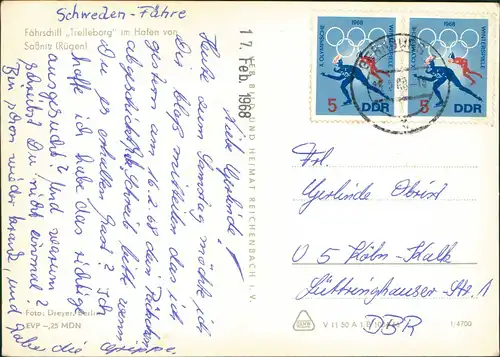 Schweden-Fähre
Fährschiff „Trelleborg" im Hafen von
Saßnitz (Rügen)
17. Feb. 1968
Liebe Gerlinde!
Heute zum Samstag möchte ich
Dir bloß mitteilen das ich
gestern am 16.2.68 das Päckchen
abgeschickt hab. Schreib bitte wenn
Du es erhalten hast? Ich
hoffe ich habe das richtige
ausgesucht? und warum
schreibst Du nicht einmal?
Bin schon wieder krank, und
habe die Grippe.
BILD UND HEIMAT REICHENBACH I. V.
Foto: Dreyer, Berlin
EVP –,25 MDN
V 11 50 A 1
1/4700
1968
X. OLYMPISCHE
WINTERSPIELE
5 DDR
1968
X. OLYMPISCHE
WINTERSPIELE
5 DDR
Frl.
Gerlinde
U 5 Köln-Kalk
Lüttringhauser-Str. 1
DBR